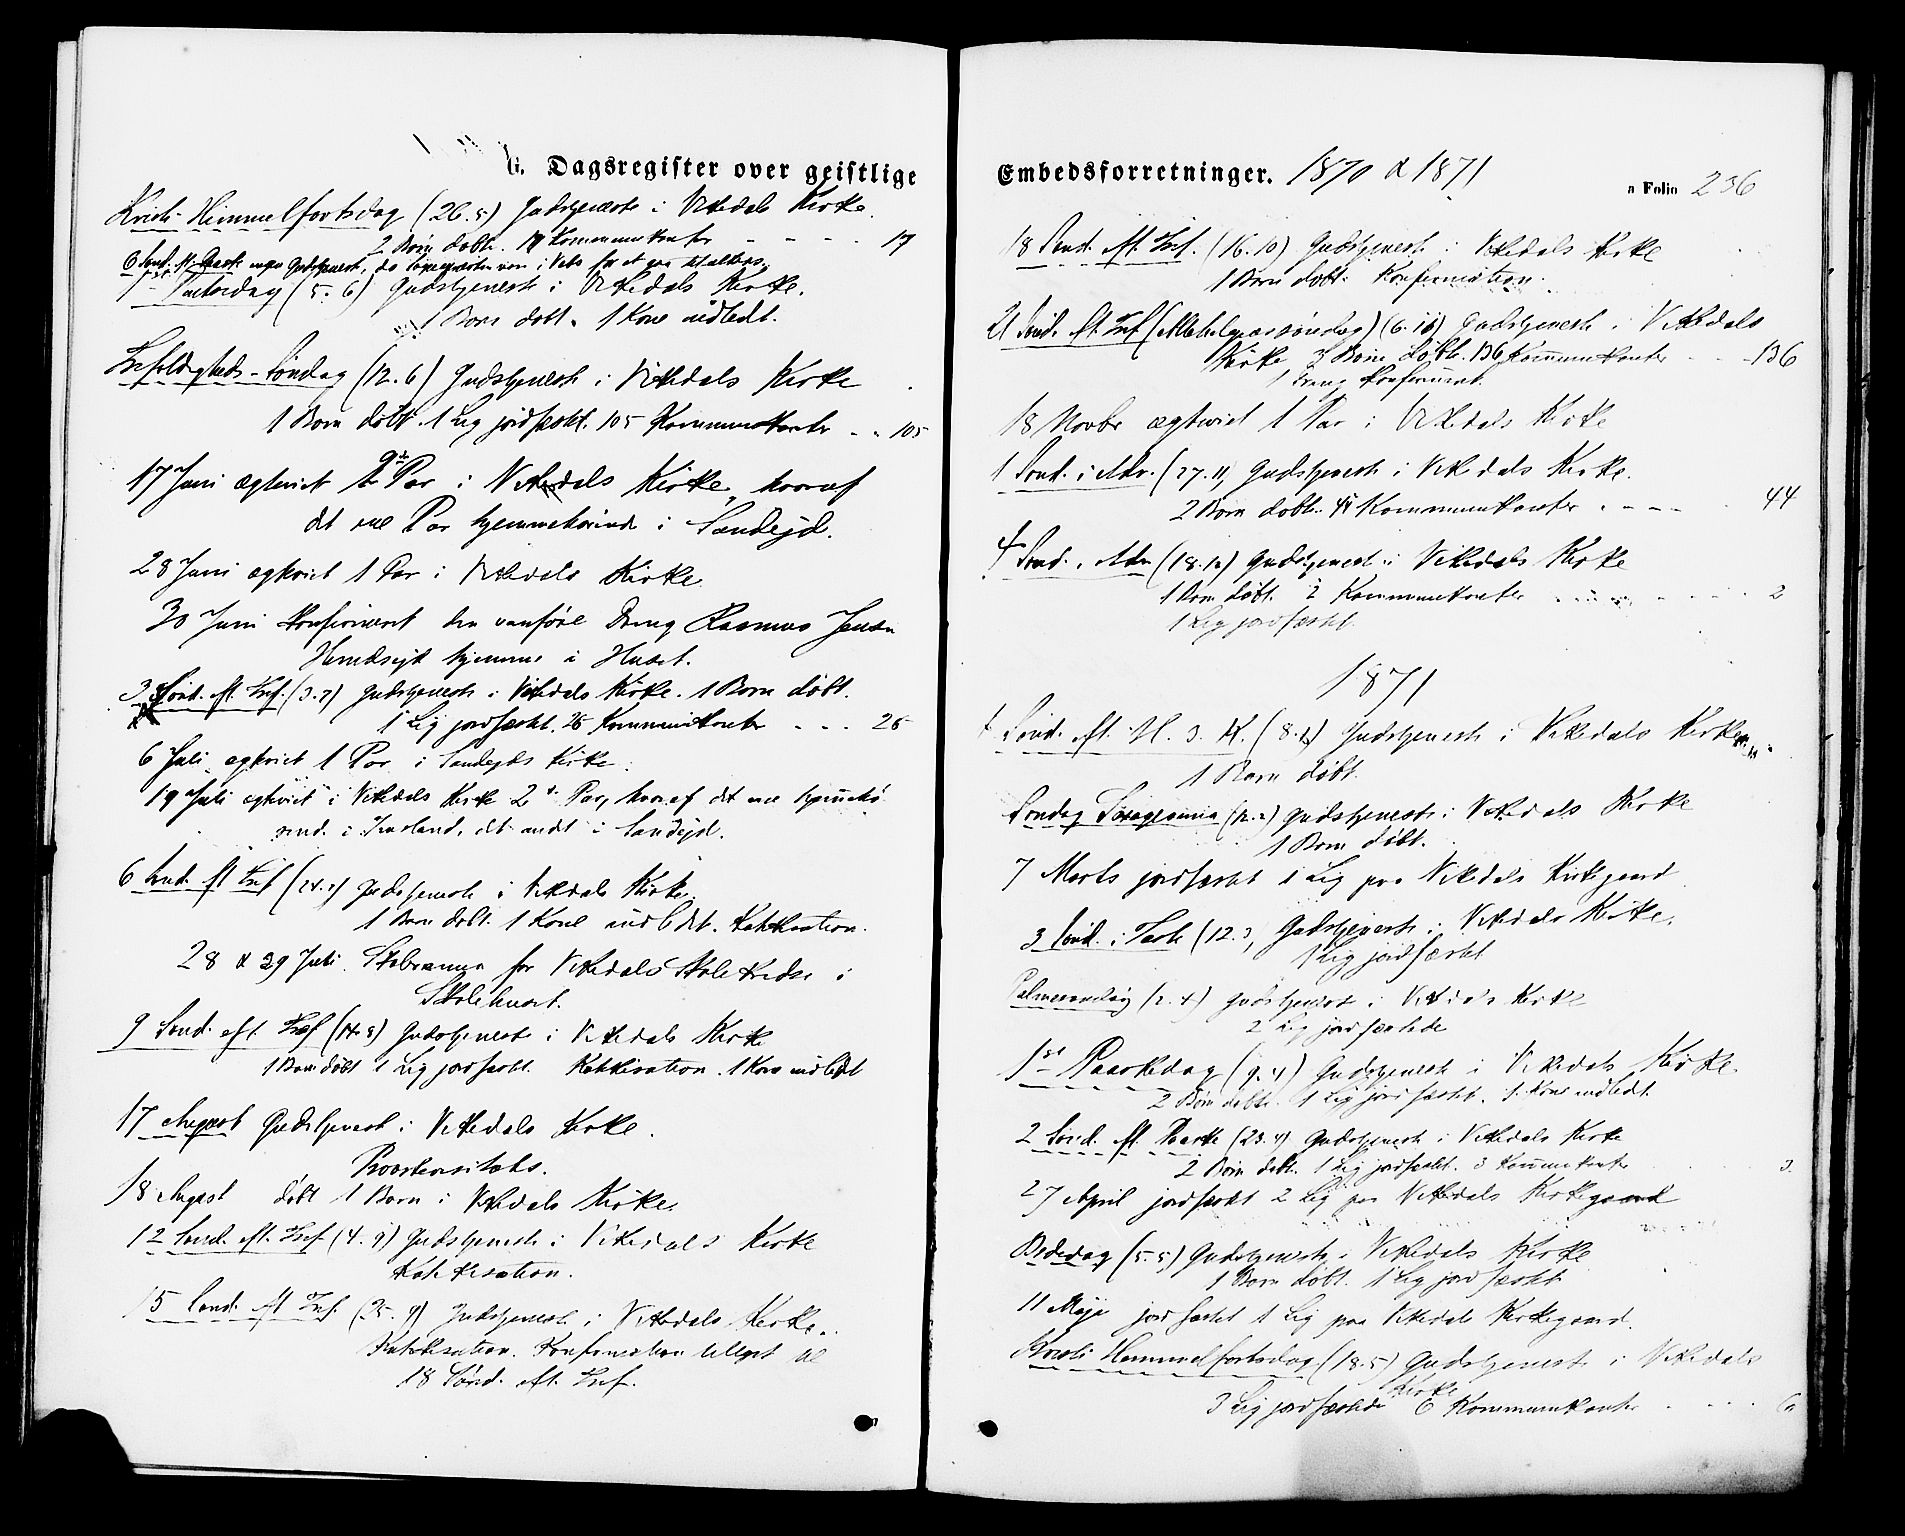 Dagsregister over geistlige
Christi Himmelfartsdag (26.5) Gudstjeneste i Vikedals Kirke.
2 Børn døbte. 17 Kommunikanter - - - - 17
6 Sønd. ft. Paaske ingen Gudstjeneste, da Sognepræsten var i Vats for at gaa til alters.
1ste Pintsedag (5.6) Gudstjeneste i Vikedals Kirke.
1 Barn døbt. 1 Kone indledt.
Trefoldigheds-Søndag (12.6) Gudstjeneste i Vikedals Kirke
1 Barn døbt. 1 Lig jordfæstet. 105 Kommunikanter - - 105
17 Juni ægteviet Par i Vikedals Kirke, hvoraf
det ene Par hjemmehørende i Sandejd.
28 Juni ægteviet 1 Par i Vikedals Kirke
30 Juni konfirmeret den vanføre Dreng Rasmus Jensen
hjemme i Huset.
3 Sønd. eft. Tref. (3.7) Gudstjeneste i Vikedals Kirke. 1 Barn døbt.
1 Lig jordfæstet. 25 Kommunikanter - - - 25
6 Juli ægteviet 1 Par i Sandejds Kirke.
19 Juli ægteviet i Vikedals Kirke 2 Par, hvoraf det ene hjemmehø-
rende i Imsland, det andet i Sandejd.
6 Sønd. eft. Tref. (24.7) Gudstjeneste i Vikedals Kirke.
1 Barn døbt. 1 Kone indledt. Katekisation.
28 & 29 Juli. Examen for Vikedals Skolekreds i
Skolehuset.
9 Sønd. eft. Tref. (14.8) Gudstjeneste i Vikedals Kirke
1 Barn døbt 1 Lig jordfæstet. Katekisation. 1 Kone indledt
17 August Gudstjeneste i Vikedals Kirke.
Provstevisitats.
18 August døbt 1 Barn i Vikedals Kirke.
12 Sønd. eft. Tref. (4.9) Gudstjeneste i Vikedals Kirke
Katekisation.
15 Sønd. eft. Tref. (25.9) Gudstjeneste i Vikedals Kirke.
Katekisation. Konfirmation udsat til
18 Sønd. eft. Tref.
Embedsforretninger. 1870 & 1871
Folio 236
18 Sønd. eft. Tref. (16.10) Gudstjeneste i Vikedals Kirke
1 Barn døbt. Konfirmation.
21 Sønd. eft. Tref. (Allehelgenssøndag) (6.11) Gudstjeneste i Vikedals
Kirke 3 Børn døbte. 136 Kommunikanter - - - 136
1 Dreng konfirmeret.
18 Novbr ægteviet 1 Par i Vikedals Kirke
1 Sønd. i Adv. (27.11) Gudstjeneste i Vikedals Kirke.
2 Børn døbte. 44 Kommunikanter - - - - 44
4 Sønd. i Adv. (18.12) Gudstjeneste i Vikedals Kirke
1 Barn døbt. 2 Kommunikanter - - - - 2
1 Lig jordfæstet.
1871
1 Sønd. eft. H. 3. K. (8.1) Gudstjeneste i Vikedals Kirke
1 Barn døbt.
Søndag Sexagesima (12.2) Gudstjeneste i Vikedals Kirke
1 Barn døbt.
7 Marts jordfæstet 1 Lig paa Vikedals Kirkegaard
3 Sønd. i Faste (12.3) Gudstjeneste i Vikedals Kirke.
1 Lig jordfæstet
Palmesøndag (2.4) Gudstjeneste i Vikedals Kirke
2 Lig jordfæstede
1ste Paaskedag (9.4) Gudstjeneste i Vikedals Kirke.
2 Børn døbte. 1 Lig jordfæstet. 1 Kone indledt.
2 Sønd. eft. Paaske (23.4) Gudstjeneste i Vikedals Kirke
2 Børn døbte. 1 Lig jordfæstet. 3 Kommunikanter 3
27 April jordfæstet 2 Lig paa Vikedals Kirkegaard
Bededag (5.5) Gudstjeneste i Vikedals Kirke
1 Barn døbt. 1 Lig jordfæstet
11 Maji jordfæstet 1 Lig paa Vikedals Kirkegaard.
Christi Himmelfartsdag (18.5) Gudstjeneste i Vikedals
Kirke
3 Lig jordfæstede 6 Kommunikanter - - - 6